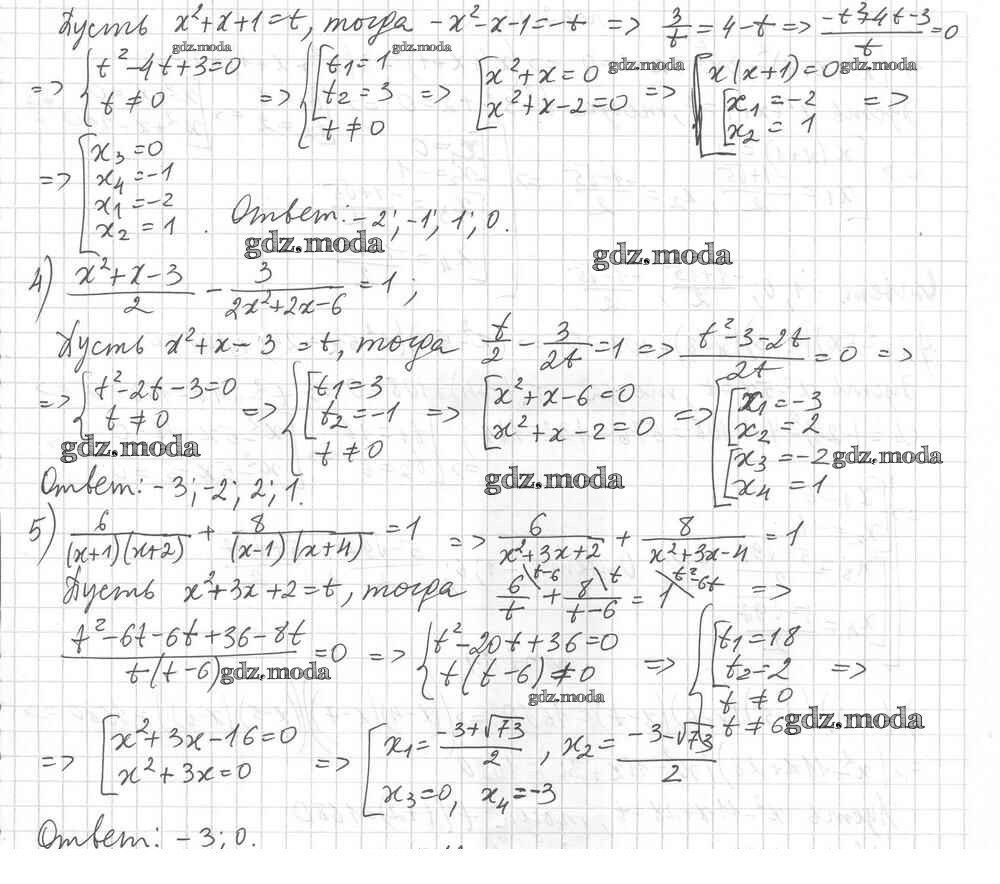 Пусть x²+x+1=t, тогда -x²-x-1=-t => 3/t = 4-t => (-t²+4t-3)/t = 0
gdz.moda gdz.moda gdz.moda gdz.moda
=> { t²-4t+3=0 ; t≠0 => { [ t₁=1 ; t₂=3 ; t≠0 => [ x²+x=0 ; x²+x-2=0 => [ x(x+1)=0 ; [ x₁=-2 ; x₂=1 =>
=> [ x₃=0 ; x₄=-1 ; x₁=-2 ; x₂=1 . Ответ: -2; -1; 1; 0.
gdz.moda gdz.moda
4) (x²+x-3)/2 - 3/(2x²+2x-6) = 1;
Пусть x²+x-3=t, тогда t/2 - 3/2t = 1 => (t²-3-2t)/2t = 0 =>
=> { t²-2t-3=0 ; t≠0 => { [ t₁=3 ; t₂=-1 ; t≠0 => [ x²+x-6=0 ; x²+x-2=0 => [ [ x₁=-3 ; x₂=2 ; [ x₃=-2 ; x₄=1
gdz.moda gdz.moda gdz.moda
Ответ: -3; -2; 2; 1.
5) 6/((x+1)(x+2)) + 8/((x-1)(x+4)) = 1 => 6/(x²+3x+2) + 8/(x²+3x-4) = 1
Пусть x²+3x+2=t, тогда 6\t-6/t + 8\t/(t-6) = 1\t²-6t =>
(t²-6t-6t+36-8t)/(t(t-6)) = 0 => { t²-20t+36=0 ; t(t-6)≠0 => { [ t₁=18 ; t₂=2 ; t≠0 ; t≠6 =>
gdz.moda gdz.moda gdz.moda
=> [ x²+3x-16=0 ; x²+3x=0 => [ x₁=(-3+√73)/2, x₂=(-3-√73)/2 ; x₃=0, x₄=-3
Ответ: -3; 0.